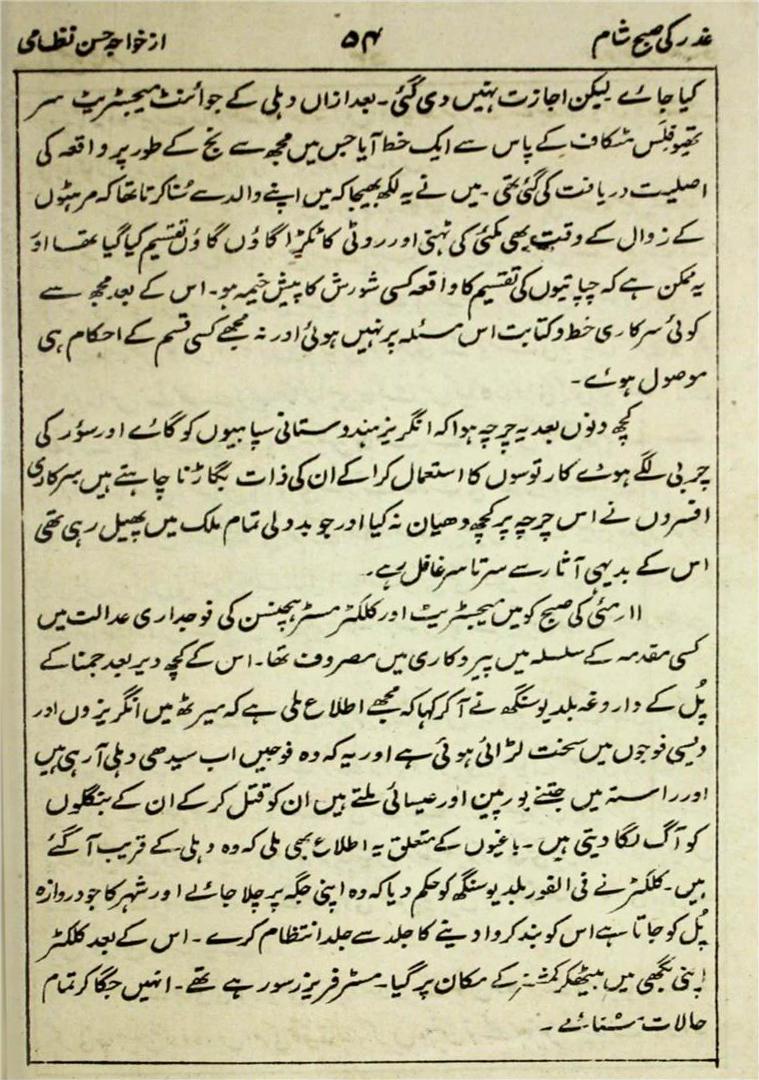 غدر کی صبح شام ۵۴ از خواجہ حسن نظامی
کیا جائے لیکن اجازت نہیں دی گئی۔ بعد ازاں دہلی کے جوائنٹ میجسٹریٹ سر
تھیوفلس مٹکاف کے پاس سے ایک خط آیا جس میں مجھ سے نج کے طور پر واقعہ کی
اصلیت دریافت کی گئی تھی۔ میں نے یہ لکھ بھیجا کہ میں اپنے والد سے سُنا کرتا تھا کہ مرہٹوں
کے زوال کے وقت بھی مکئی کی ٹہنی اور روٹی کا ٹکڑا گاؤں گاؤں تقسیم کیا گیا تھا اور
یہ ممکن ہے کہ چپاتیوں کی تقسیم کا واقعہ کسی شورش کا پیش خیمہ ہو۔ اس کے بعد مجھ سے
کوئی سرکاری خط و کتابت اس مسئلہ پر نہیں ہوئی اور نہ مجھے کسی قسم کے احکام ہی
موصول ہوئے۔
کچھ دنوں بعد یہ چرچہ ہوا کہ انگریز ہندوستانی سپاہیوں کو گائے اور سؤر کی
چربی لگے ہوئے کارتوسوں کا استعمال کرا کے ان کی ذات بگاڑنا چاہتے ہیں سرکاری
افسروں نے اس چرچہ پر کچھ دھیان نہ کیا اور جو بددلی تمام ملک میں پھیل رہی تھی
اس کے بدیہی آثار سے سرتاسر غافل رہے۔
۱۱ر مئی کی صبح کو میں میجسٹریٹ اور کلکٹر مسٹر ہچنسن کی فوجداری عدالت میں
کسی مقدمہ کے سلسلہ میں پیروکاری میں مصروف تھا۔ اس کے کچھ دیر بعد جمنا کے
پُل کے داروغہ بلدیو سنگھ نے آ کر کہا کہ مجھے اطلاع ملی ہے کہ میرٹھ میں انگریزوں اور
دیسی فوجوں میں سخت لڑائی ہوئی ہے اور یہ کہ وہ فوجیں اب سیدھی دہلی آ رہی ہیں
اور راستہ میں جتنے یورپین اور عیسائی ملتے ہیں ان کو قتل کر کے ان کے بنگلوں
کو آگ لگا دیتی ہیں۔ باغیوں کے متعلق یہ اطلاع بھی ملی کہ وہ دہلی کے قریب آ گئے
ہیں۔ کلکٹر نے فی الفور بلدیو سنگھ کو حکم دیا کہ وہ اپنی جگہ پر چلا جائے اور شہر کا جو دروازہ
پُل کو جاتا ہے اس کو بند کروا دینے کا جلد سے جلد انتظام کرے۔ اس کے بعد کلکٹر
اپنی بگھی میں بیٹھکر کمشنر کے مکان پر گیا۔ مسٹر فریزر سو رہے تھے۔ انہیں جگا کر تمام
حالات سُنائے۔